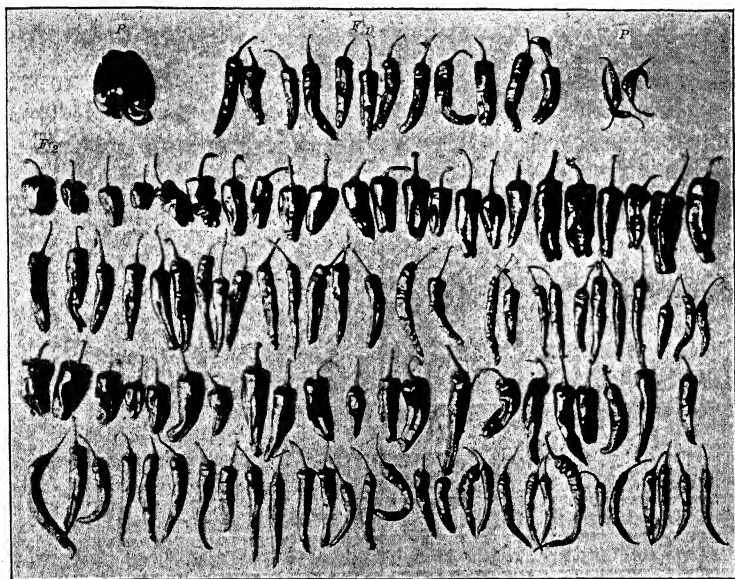 P F₁ P
F₂